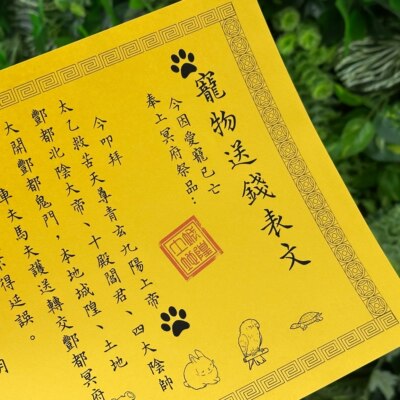 寵物送錢表文
今因愛寵已亡
奉上冥府祭品：
今叩拜
太乙救苦天尊青玄九陽上帝
酆都北陰大帝、十殿閻君、四大陰帥
大開酆都鬼門，本地城隍、土地
車夫馬夫護送轉交酆都冥府
得延誤。